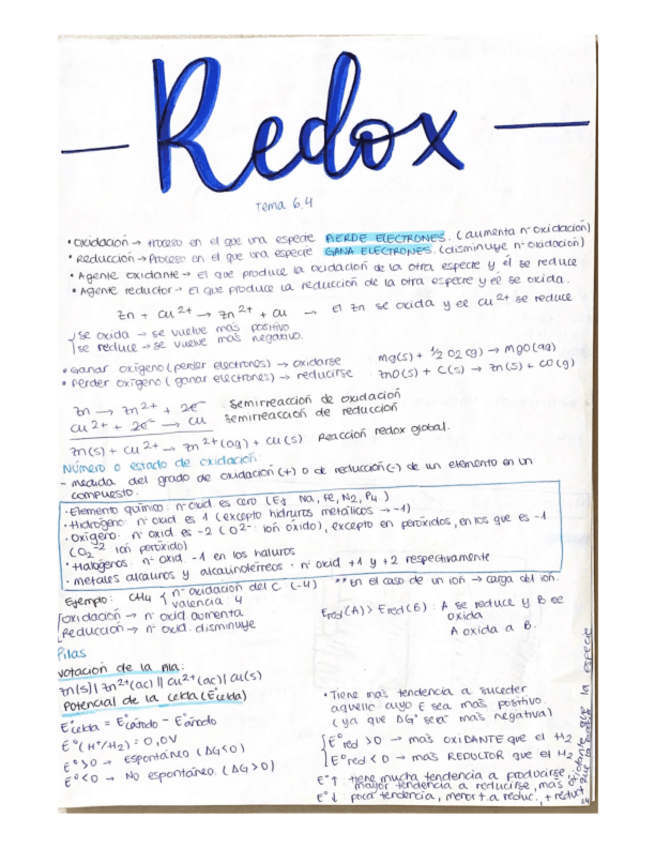 Redox
Tema 6.4
• Oxidación → Proceso en el que una especie PIERDE ELECTRONES. (aumenta nº oxidación)
• Reducción → Proceso en el que una especie GANA ELECTRONES. (disminuye nº oxidación)
• Agente oxidante → el que produce la oxidación de la otra especie y él se reduce
• Agente reductor → el que produce la reducción de la otra especie y él se oxida.
Zn + Cu²⁺ → Zn²⁺ + Cu → el Zn se oxida y el Cu²⁺ se reduce
se oxida → se vuelve más positivo
se reduce → se vuelve más negativo.
• Ganar oxígeno (perder electrones) → oxidarse : Mg(s) + ½ O2 (g) → MgO(aq)
• Perder oxígeno (ganar electrones) → reducirse : ZnO(s) + C(s) → Zn(s) + CO(g)
Zn → Zn²⁺ + 2e⁻ : Semirreacción de oxidación
Cu²⁺ + 2e⁻ → Cu : Semirreacción de reducción
Zn(s) + Cu²⁺ → Zn²⁺(aq) + Cu(s) Reacción redox global.
Número o estado de oxidación:
- medida del grado de oxidación (+) o de reducción (-) de un elemento en un
compuesto.
• Elemento químico: nº oxid es cero (Ej Na, Fe, N2, P4)
• Hidrógeno: nº oxid es 1 (excepto hidruros metálicos → -1)
• Oxígeno: nº oxid es -2 (O²⁻: ión óxido), excepto en peróxidos, en los que es -1
(O2⁻² ión peróxido)
• Halógenos: nº oxid -1 en los haluros
• metales alcalinos y alcalinotérreos: nº oxid +1 y +2 respectivamente
Ejemplo: CH4 { nº oxidación del C (-4) ** En el caso de un ión → carga del ión.
valencia 4
Oxidación → nº oxid aumenta
Reducción → nº oxid. disminuye
Ered(A) > Ered(B) : A se reduce y B se
oxida
A oxida a B.
Pilas
Notación de la pila:
Zn(s) | Zn²⁺(ac) || Cu²⁺(ac) | Cu(s)
Potencial de la celda (E°celda)
E°celda = E°cátodo - E°ánodo
E°(H⁺/H2) = 0,0V
E° > 0 → Espontáneo (ΔG<0)
E° < 0 → No espontáneo. (ΔG>0)
• Tiene más tendencia a suceder
aquello cuyo E sea más positivo.
(ya que ΔG° será más negativa)
E°red > 0 → más OXIDANTE que el H2
E°red < 0 → más REDUCTOR que el H2
E° ↑ : tiene mucha tendencia a producirse,
mayor tendencia a reducirse, más
oxidante será la especie
E° ↓ : poca tendencia, menor t. a reduc., + reduct